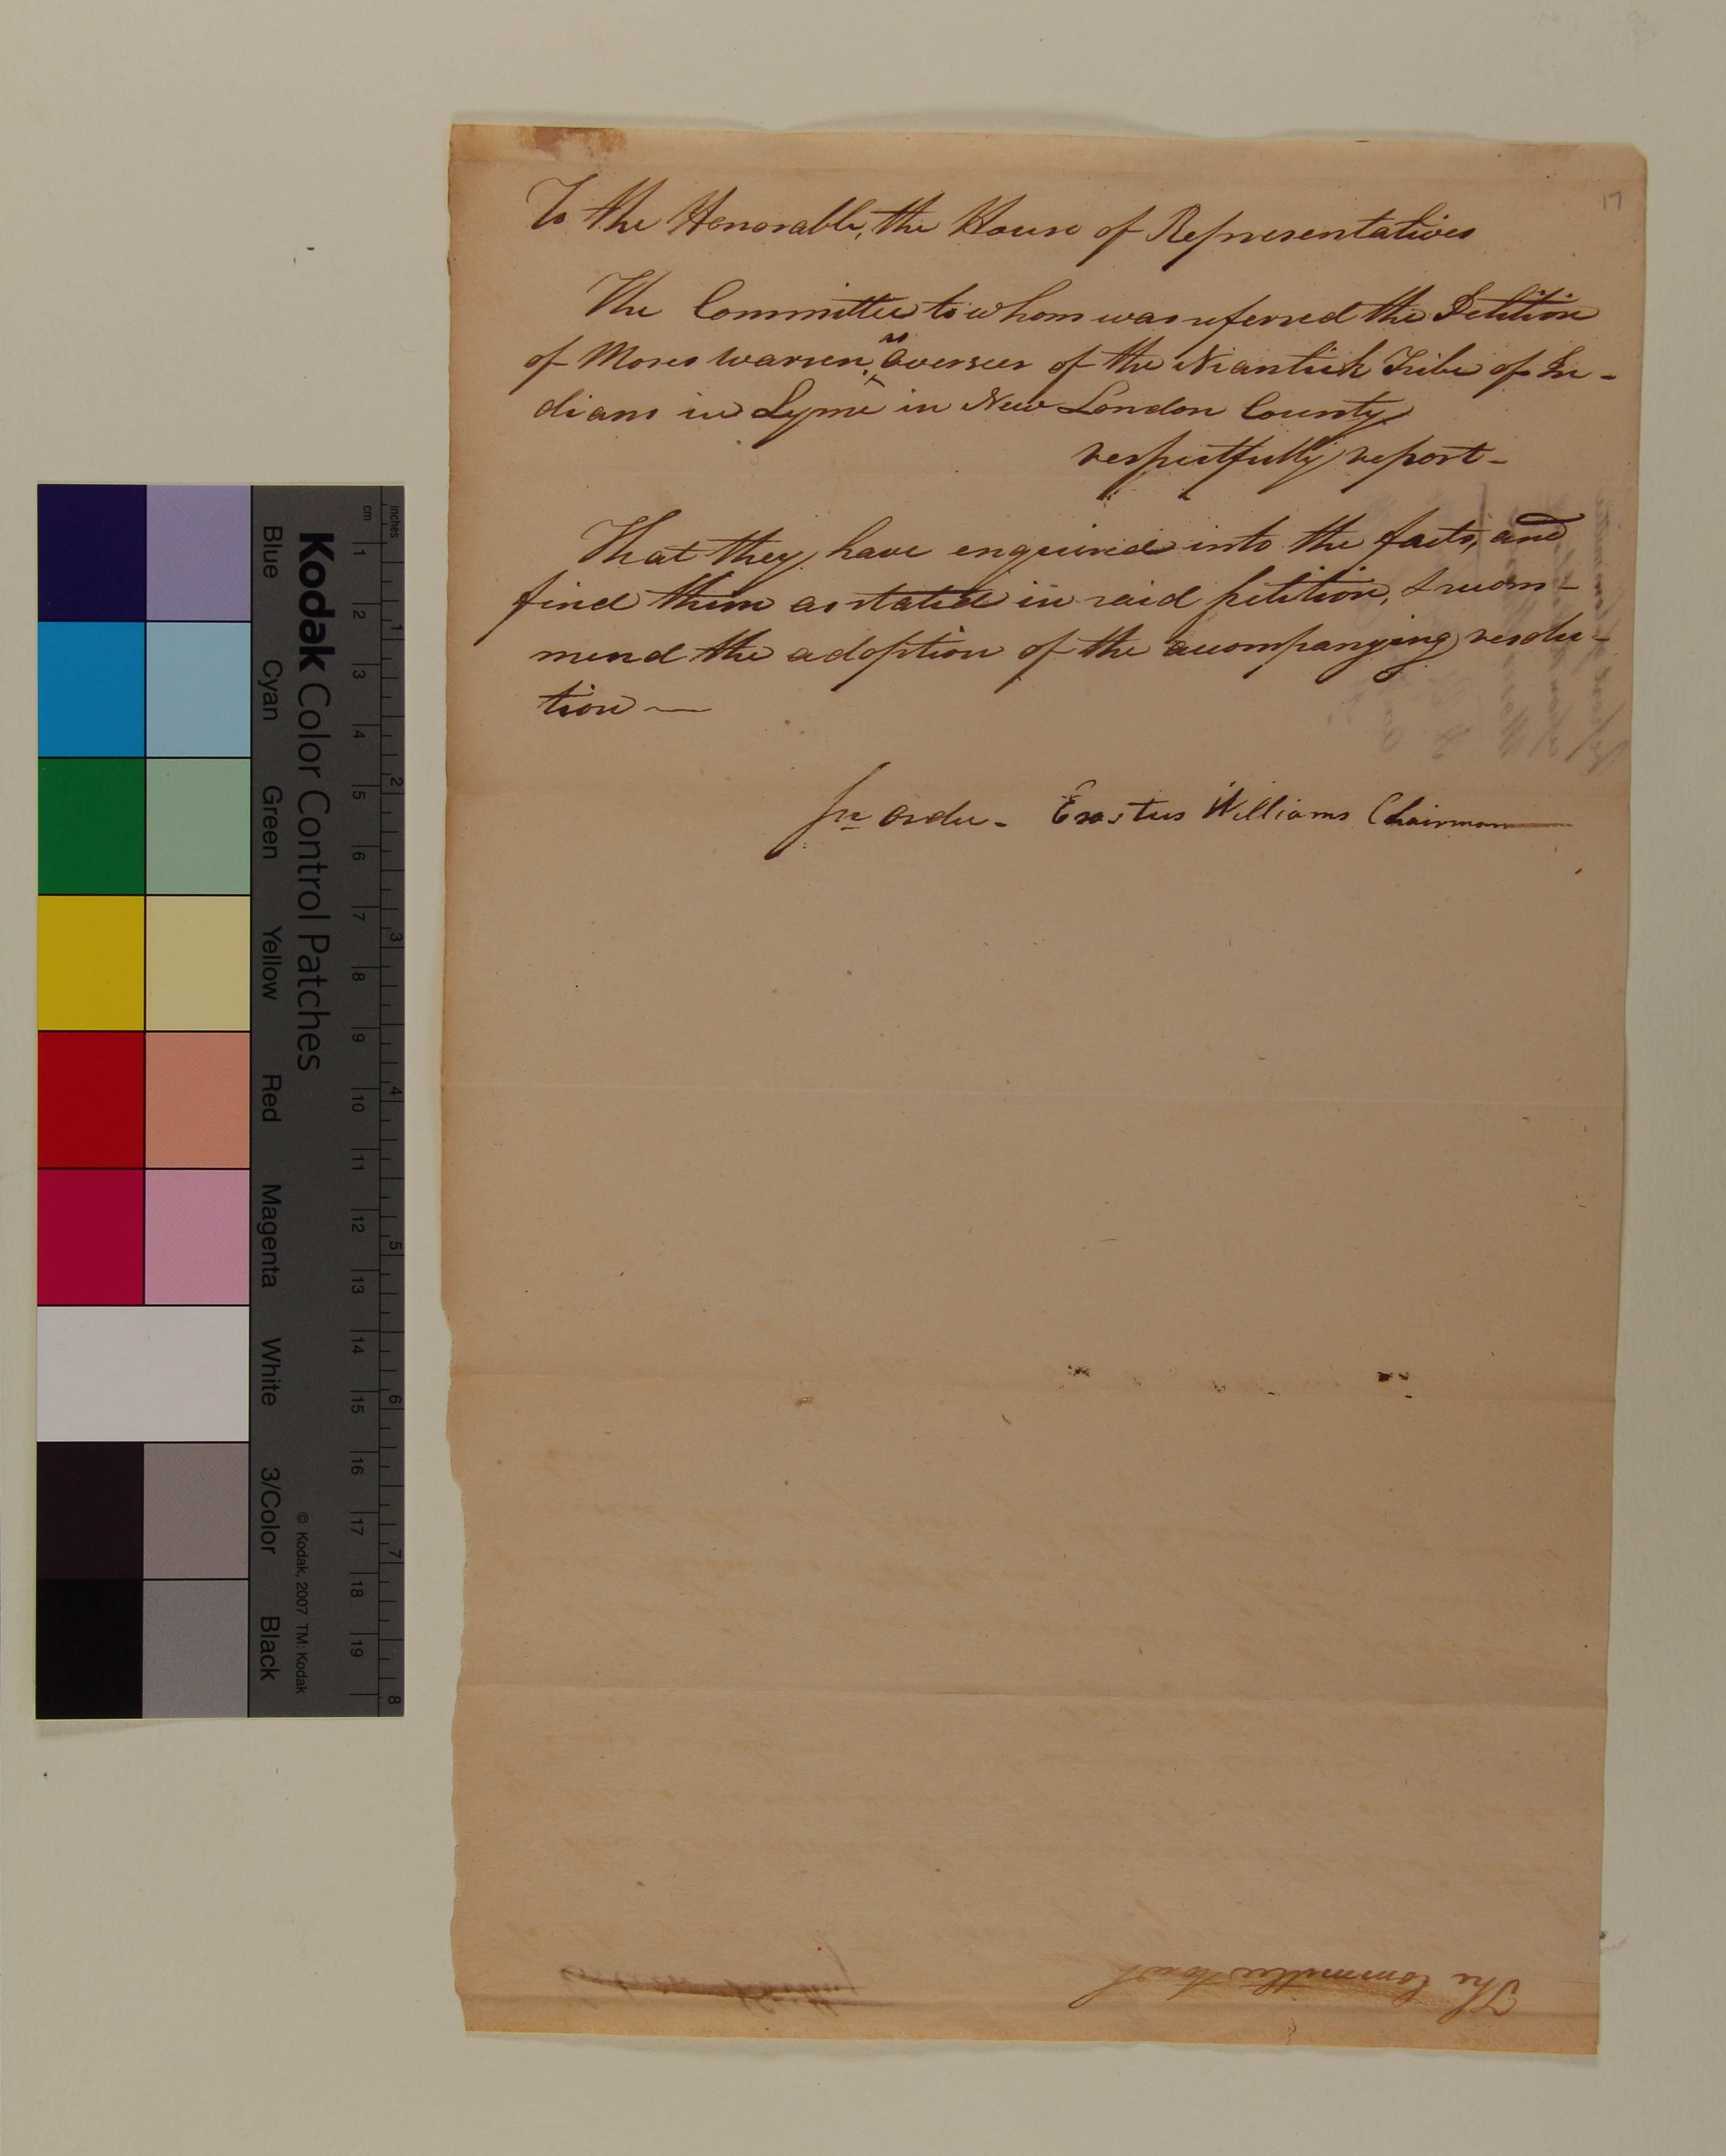 17
To the Honorable, the House of Representatives
The Committee to whom was referred the Petition
of Moses Warren, as Overseer of the Niantick Tribe of In-
dians in Lyme in New London County
respectfully report-
That they have enquired into the facts, and
find them as stated in said petition, & recom-
mend the adoption of the accompanying resolu-
tion —
pr order - Erastus Williams Chairman
The Committee to wh
Kodak Color Control Patches
© Kodak, 2007 TM: Kodak
Blue Cyan Green Yellow Red Magenta White 3/Color Black
cm 1 2 3 4 5 6 7 8 9 10 11 12 13 14 15 16 17 18 19
inches 1 2 3 4 5 6 7 8